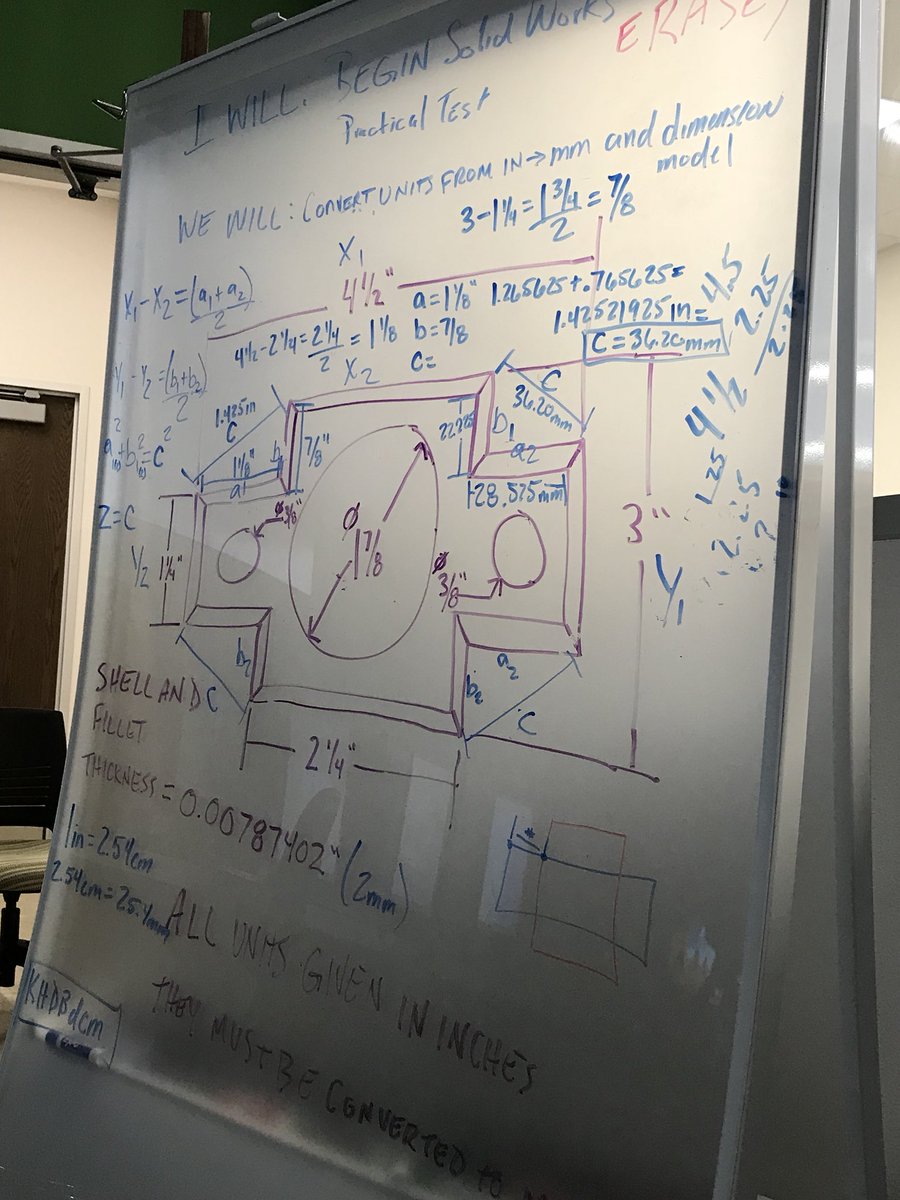 ERASE
I WILL: BEGIN Solid Works
Practical Test
WE WILL: CONVERT UNITS FROM IN→mm and dimension
model
3-1¼=1¾/2=⅞
X₁
4½"
X₁-X₂=(a₁+a₂)/2
4½-2¼=2¼/2=1⅛
a=1⅛"
b=⅞
c=
1.265625+.765625=
1.42521925in=
C=36.20mm
4.5
2.25
X₂
Y₁-Y₂=(b₁+b₂)/2
a²+b²=c²
2=C
1.425in
C
1⅛"
a
b
⅞"
22.225
C
36.20mm
b₁
a₂
28.575mm
4½
1.25
Y₂
1¼"
ø
ø
1⅞
ø
3/8"
3"
Y₁
b₂
C
a₂
b₂
C
2¼"
SHELL AND
FILLET
THICKNESS = 0.00787402" (2mm)
1in=2.54cm
2.54cm=25.4mm
*
ALL UNITS GIVEN IN INCHES
THEY MUST BE CONVERTED to
KHDBdcm